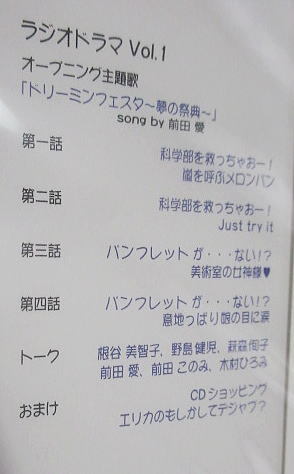 ラジオドラマ Vol.1
オープニング主題歌
「ドリーミンフェスタ～夢の祭典～」
song by 前田 愛
第一話
科学部を救っちゃおー!
嵐を呼ぶメロンパン
第二話
科学部を救っちゃおー!
Just try it
第三話
パンフレット が・・・ない!?
美術室の女神様♥
第四話
パンフレット が・・・ない!?
意地っぱり娘の目に涙
トーク
根谷 美智子、野島 健児、萩森 侚子
前田 愛、前田 このみ、木村ひろみ
おまけ
CDショッピング
エリカのもしかしてデジャブ?